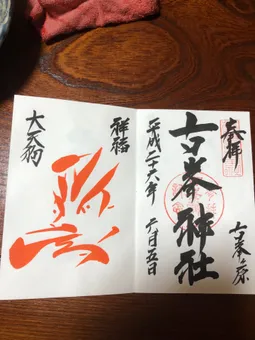 奉拝
古峯ヶ原
古峯神社
平成二十六年六月五日
祥福
大天狗